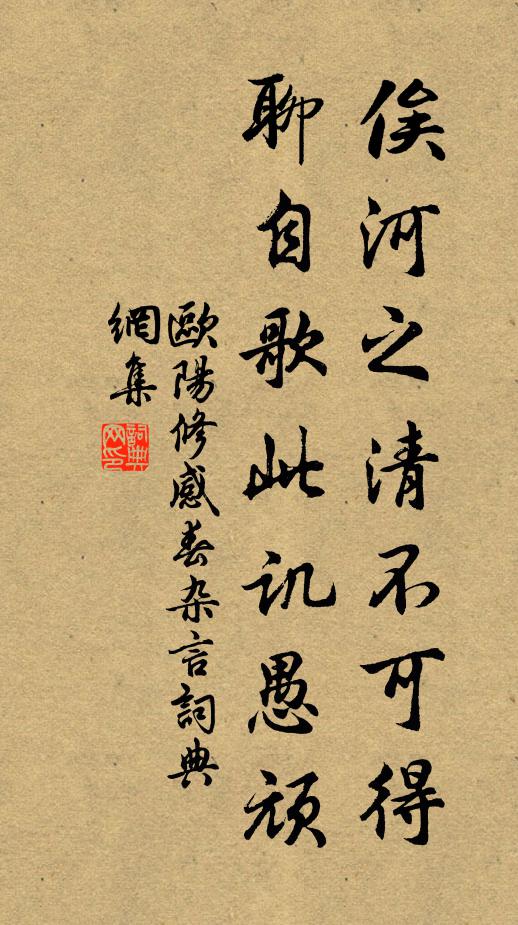 俟河之清不可得
聊自歌此讥愚顽
歐陽修感春杂言詞典
網集
詞典
网印